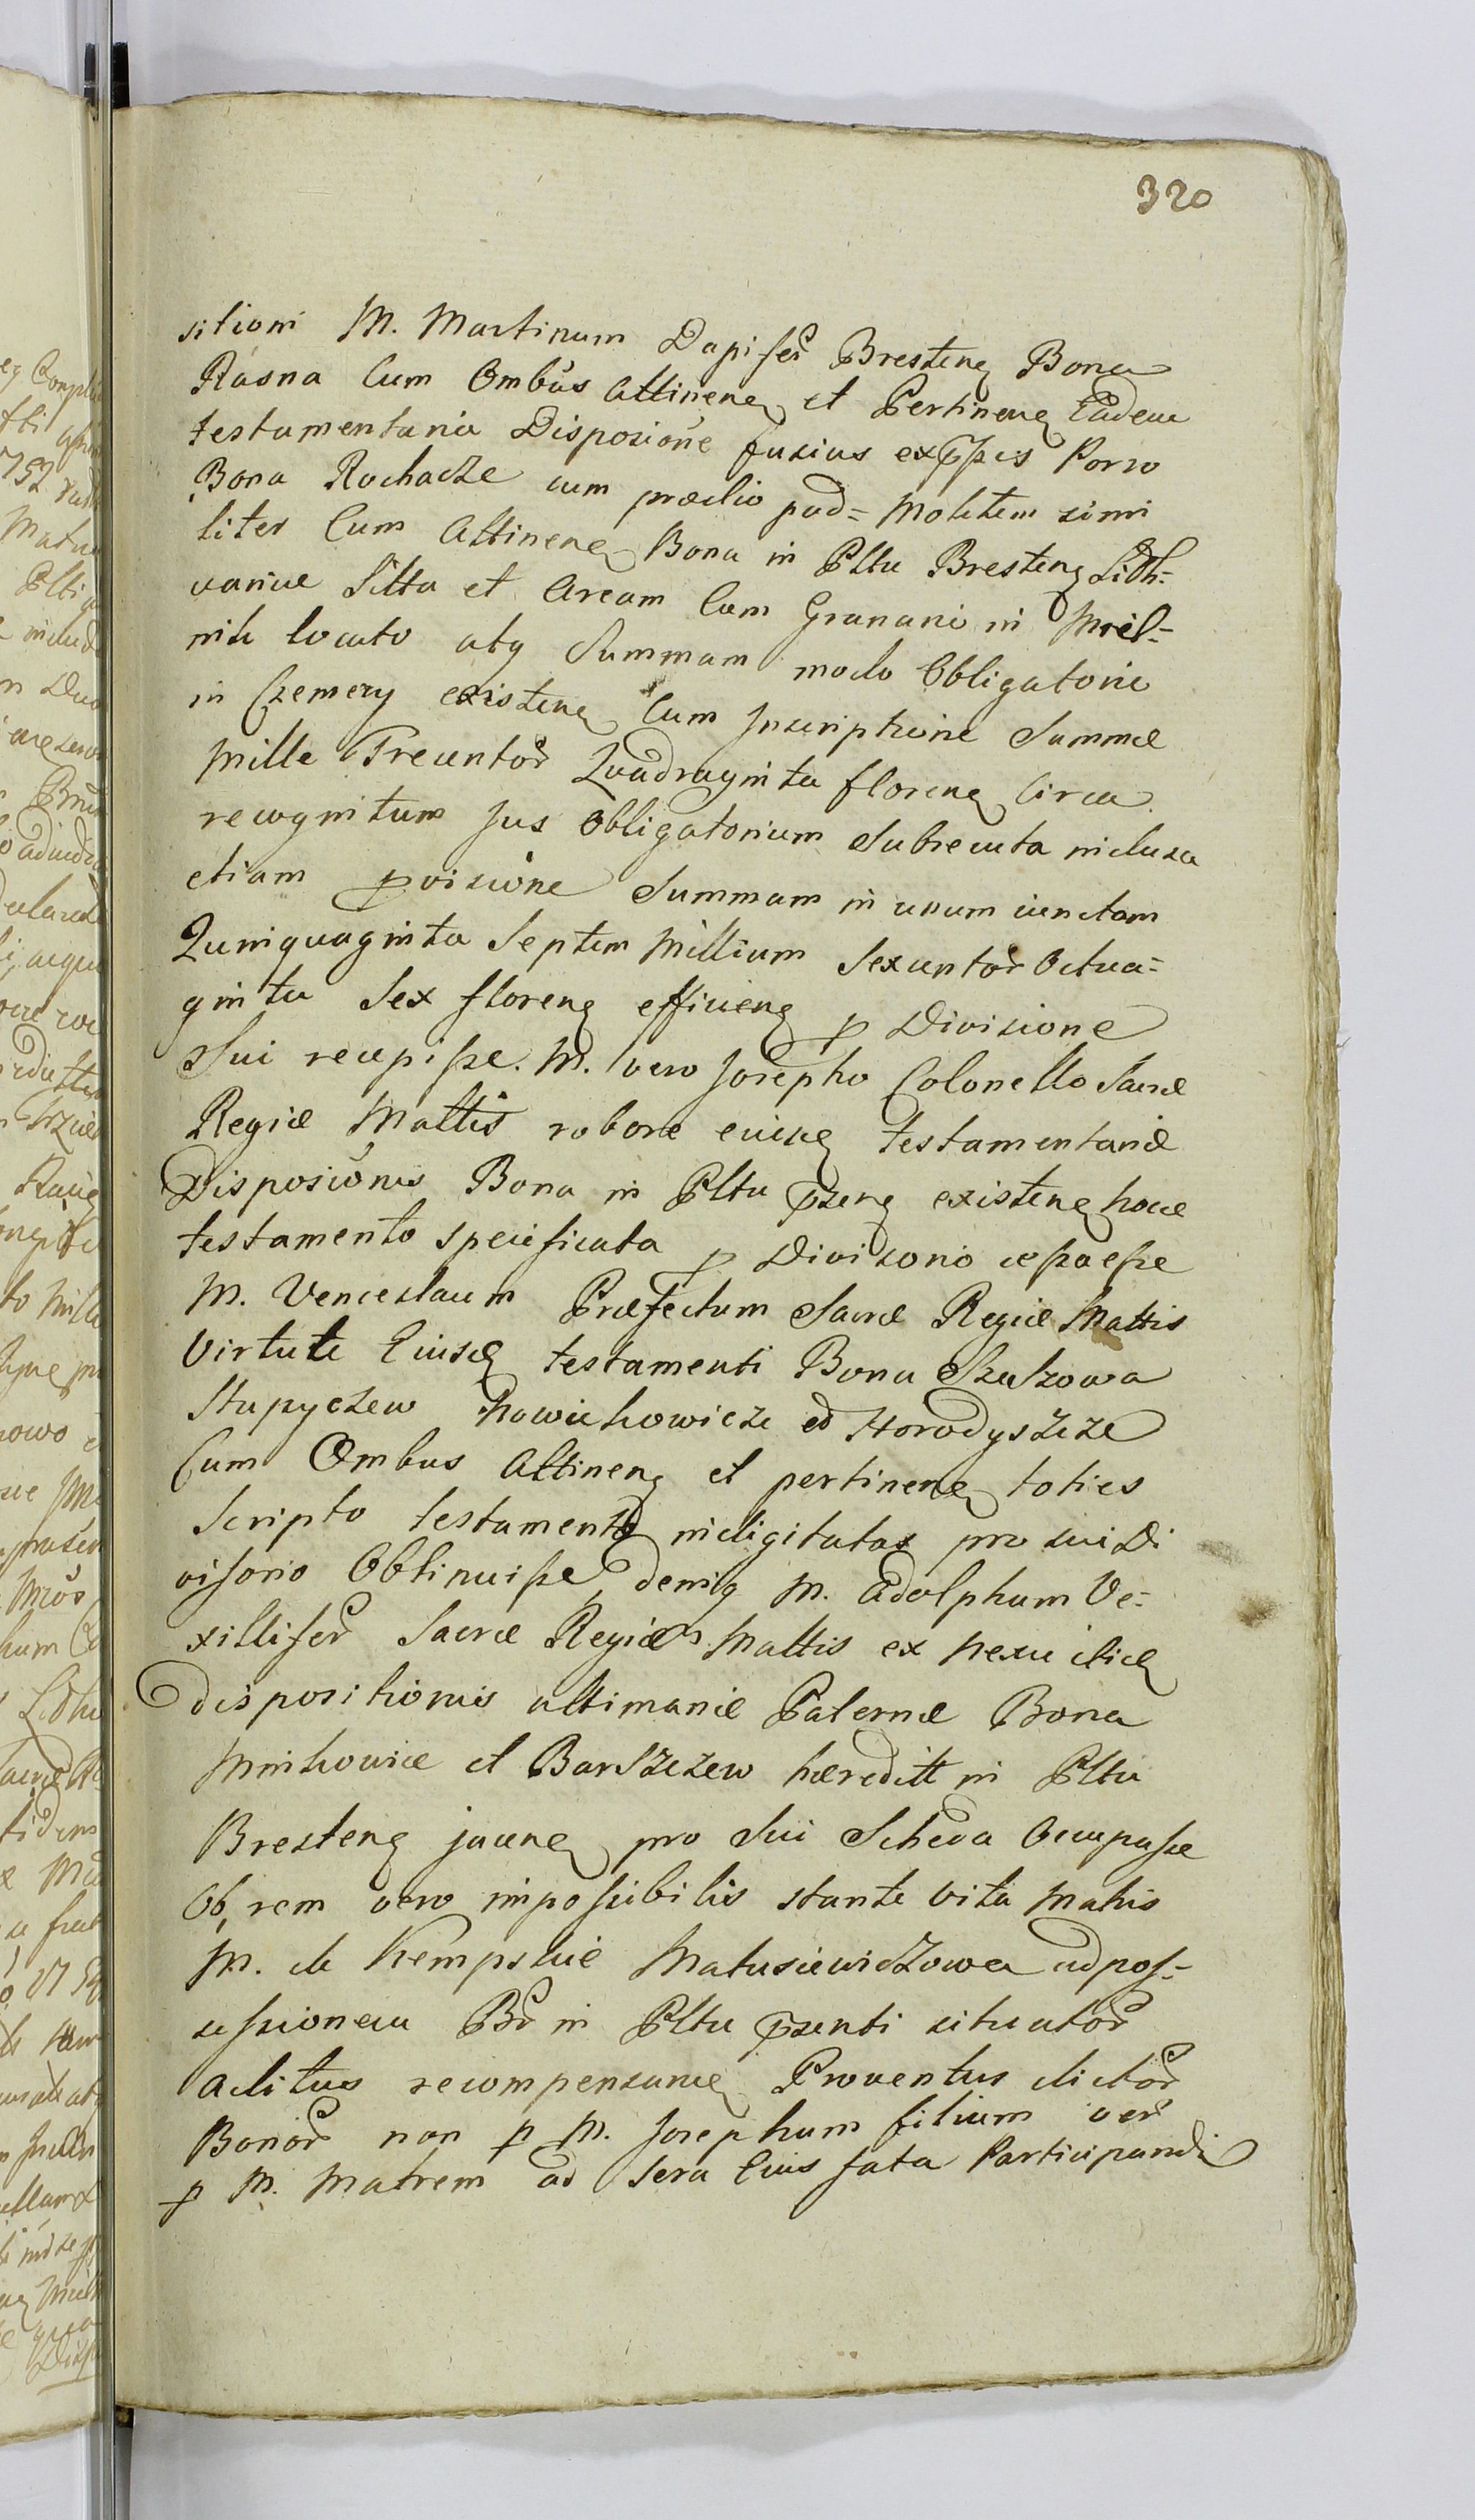 320
sitioni M. Martinum Dapifer Bresteng Bona
Rasna Cum Ombus Attineng et Pertineng Eadem
testamentaria Disposione fusius expssis Porro
Bona Rochacze cum prædio pod= Molitem simi
liter Cum Attineng Bona in Pltu Bresteng Lith=
vaniæ Sitta et Aream Cum Granario in Miel=
nik locato atq Summam modo Obligatorio
in Czemery existeng Cum Inscriptione Summæ
Mille Trecentor Quadraginta floreng Circa
recognitum Jus Obligatorium Subsecuta inclusa
etiam pvisione Summam in unum iunctam
Quinquaginta Septem Millium Sexcentor Octua=
ginta Sex floreng efficieng p Divisione
Sui recepisse. M. vero Josepho Colonello Sacræ
Regiæ Mattis robore eiusq testamentariæ
Disposionis Bona in Pltu pseng existeng hocce
testamento specificata p Divisorio cessæsse
M. Venceslaum Præfectum Sacræ Regiæ Mattis
Virtute Eiusq testamenti Bona Szuszowa
Stupyczew Nowickowicze et Horodyszcze
Cum Ombus Attineng et pertineng toties
Scripto testamento indigitatas pro sui Di
visorio Obtinuisse, deniq M. Adolphum Ve=
xillifer Sacræ Regiæ Mattis ex Nexu eiusq
dispositionis ultimariæ Paternæ Bona
Minkowice et Barszczew hæreditt in Pltu
Bresteng jaceng pro Sui Scheda Occupasse
Ob, rem vero impossibilis stante vita Matris
M. de Kempskie Matusiewiczowa ad pos=
sessionem Br in Pltu psenti situator
Aditus recompensang Proventus dictor
Bonor non p M. Josephum filium ver
p M. Matrem ad Sera Eius fata Participandi